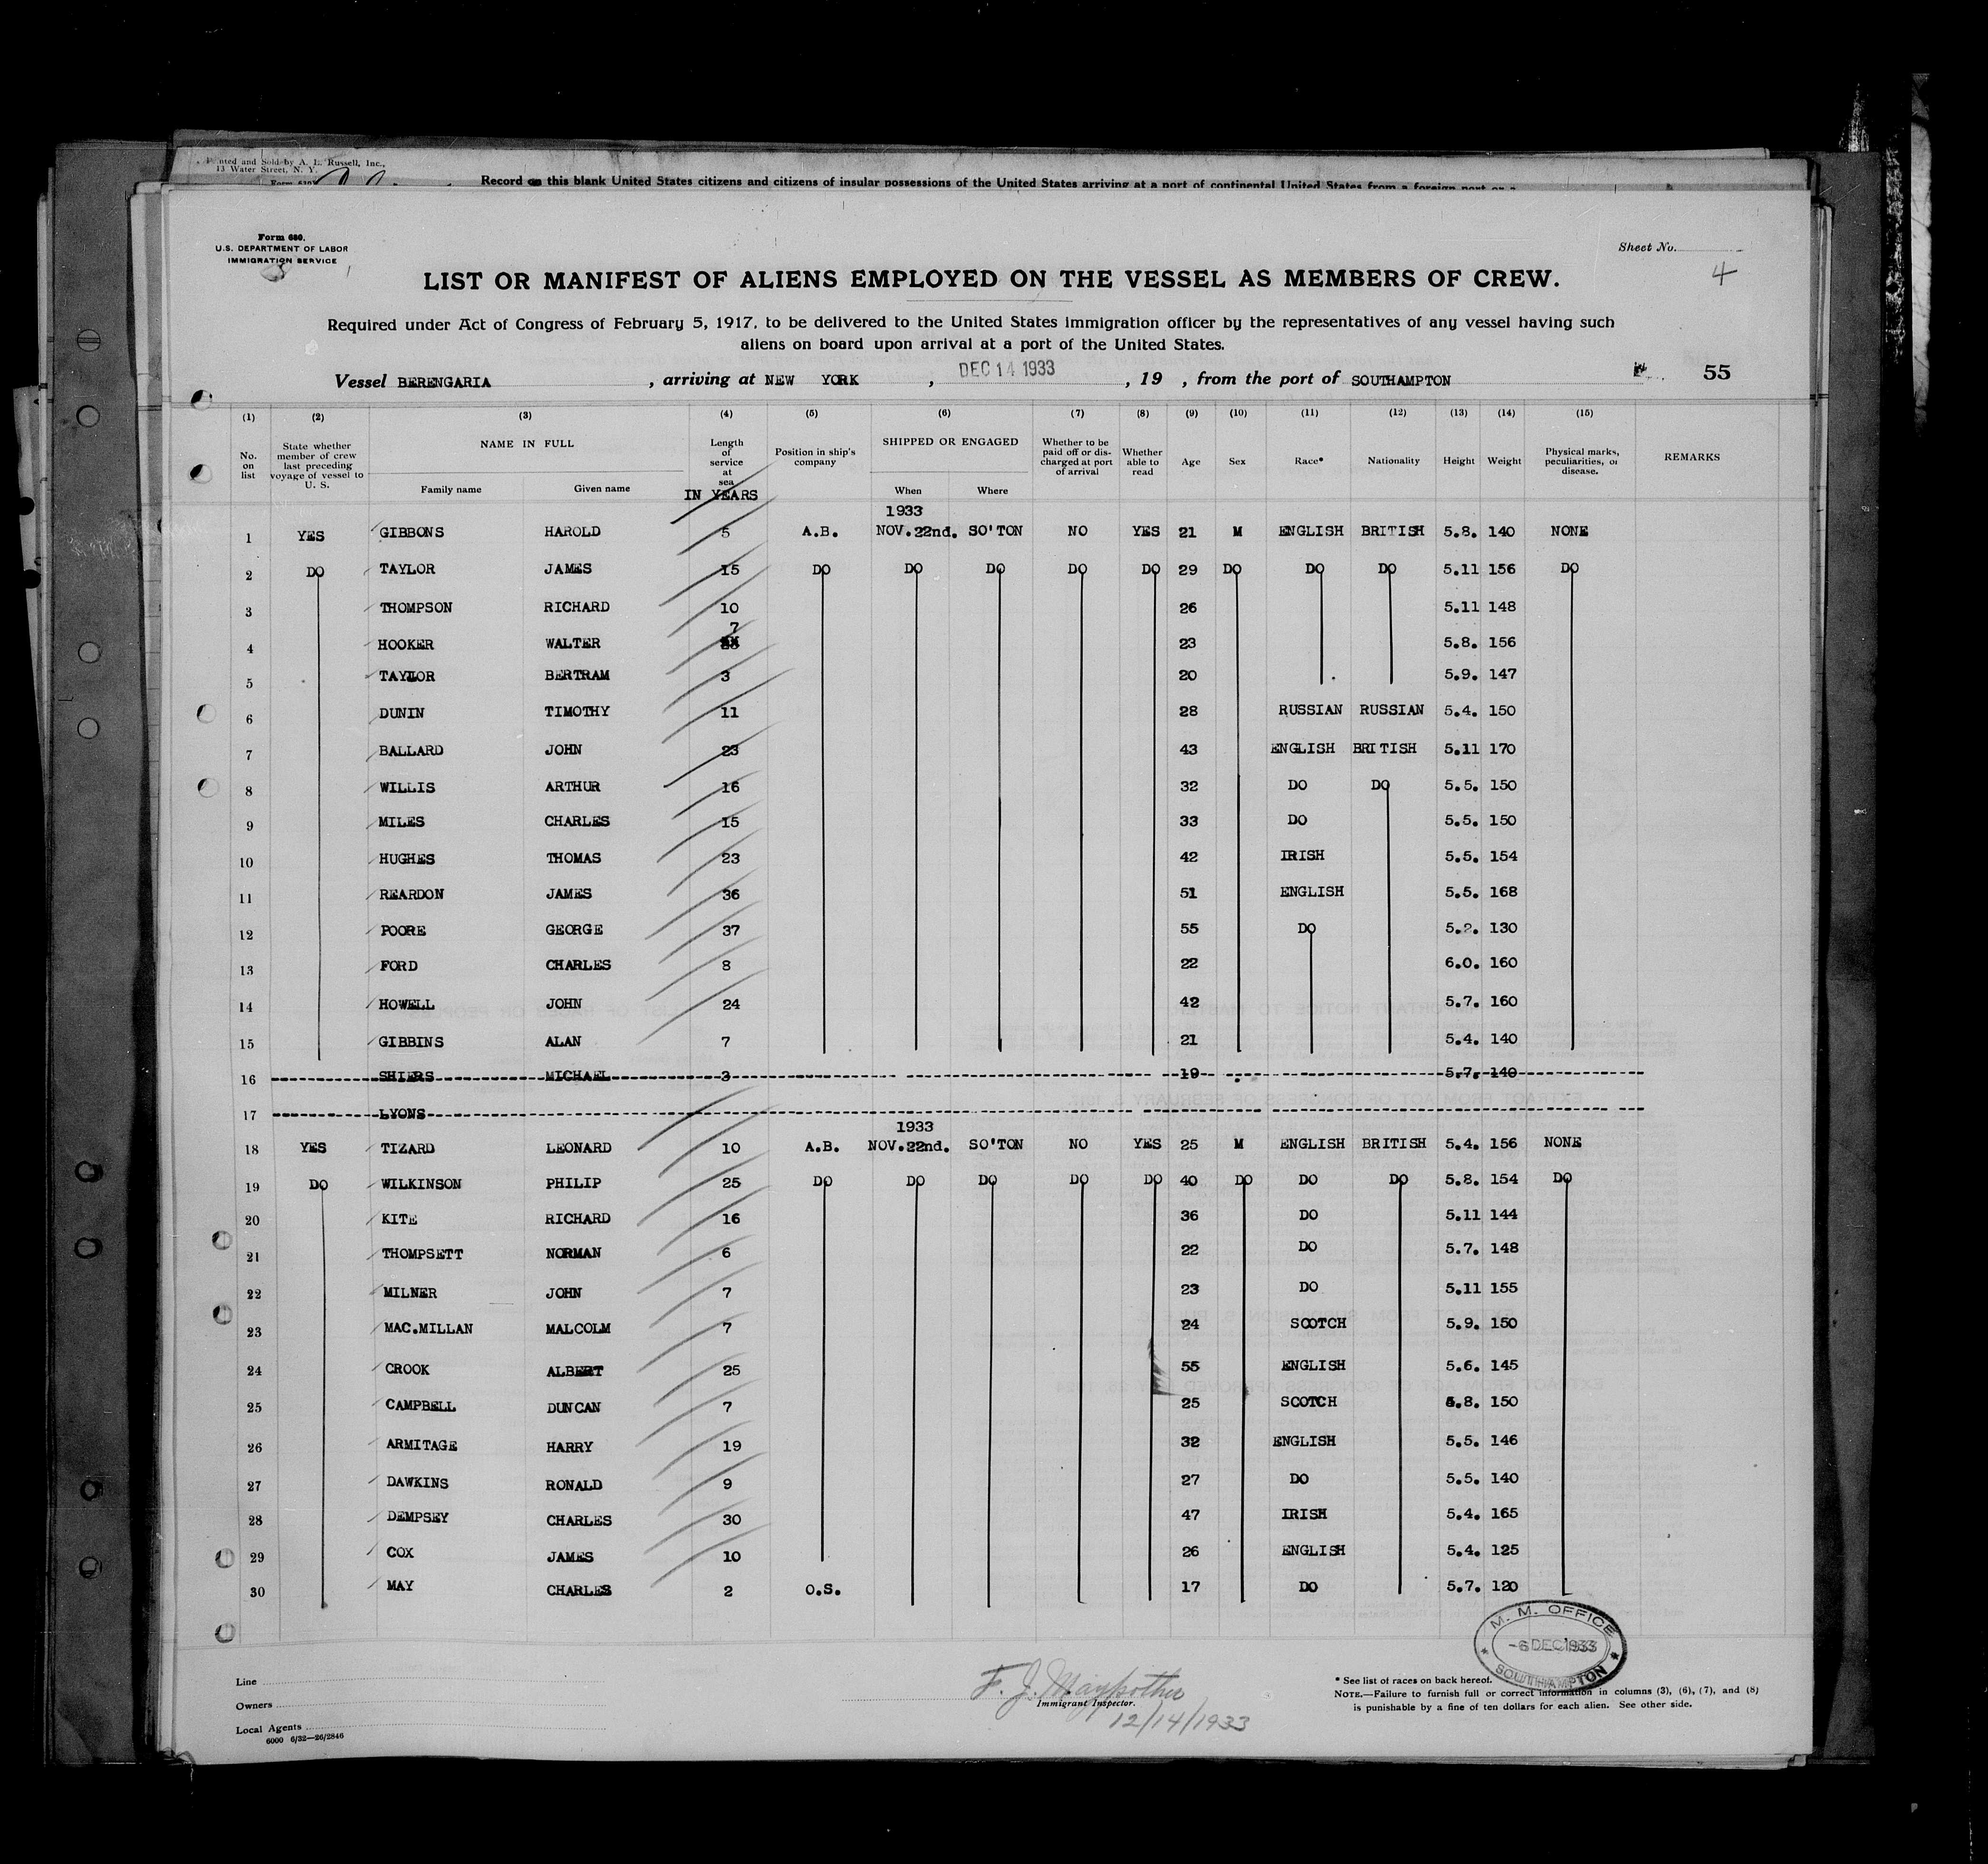 Printed and Sold by A. L. Russell, Inc.,
13 Water Street, N. Y.
Record on this blank United States citizens and citizens of insular possessions of the United States arriving at a port of continental United States from a foreign port or a
Form 680.
U.S. DEPARTMENT OF LABOR
IMMIGRATION SERVICE
Sheet No.
4
LIST OR MANIFEST OF ALIENS EMPLOYED ON THE VESSEL AS MEMBERS OF CREW.
Required under Act of Congress of February 5, 1917, to be delivered to the United States immigration officer by the representatives of any vessel having such
aliens on board upon arrival at a port of the United States.
Vessel BERENGARIA, arriving at NEW YORK, DEC 14 1933, 19 , from the port of SOUTHAMPTON 55
(1) (2) (3) (4) (5) (6) (7) (8) (9) (10) (11) (12) (13) (14) (15)
No. on list State whether member of crew last preceding voyage of vessel to U. S. NAME IN FULL Family name Given name Length of service at sea IN YEARS Position in ship's company SHIPPED OR ENGAGED When Where Whether to be paid off or discharged at port of arrival Whether able to read Age Sex Race* Nationality Height Weight Physical marks, peculiarities, or disease. REMARKS
1933
1 YES GIBBONS HAROLD 5 A.B. NOV.22nd. SO'TON NO YES 21 M ENGLISH BRITISH 5.8. 140 NONE
2 DO TAYLOR JAMES 15 DO DO DO DO DO 29 DO DO DO 5.11 156 DO
3 THOMPSON RICHARD 10 26 5.11 148
4 HOOKER WALTER 7 23 5.8. 156
5 TAYLOR BERTRAM 3 20 5.9. 147
6 DUNIN TIMOTHY 11 28 RUSSIAN RUSSIAN 5.4. 150
7 BALLARD JOHN 23 43 ENGLISH BRITISH 5.11 170
8 WILLIS ARTHUR 16 32 DO DO 5.5. 150
9 MILES CHARLES 15 33 DO 5.5. 150
10 HUGHES THOMAS 23 42 IRISH 5.5. 154
11 REARDON JAMES 36 51 ENGLISH 5.5. 168
12 POORE GEORGE 37 55 DO 5.2. 130
13 FORD CHARLES 8 22 6.0. 160
14 HOWELL JOHN 24 42 5.7. 160
15 GIBBINS ALAN 7 21 5.4. 140
16 SHIERS MICHAEL 3 19 5.7. 140
17 LYONS
1933
18 YES TIZARD LEONARD 10 A.B. NOV.22nd. SO'TON NO YES 25 M ENGLISH BRITISH 5.4. 156 NONE
19 DO WILKINSON PHILIP 25 DO DO DO DO DO 40 DO DO DO 5.8. 154 DO
20 KITE RICHARD 16 36 DO 5.11 144
21 THOMPSETT NORMAN 6 22 DO 5.7. 148
22 MILNER JOHN 7 23 DO 5.11 155
23 MAC.MILLAN MALCOLM 7 24 SCOTCH 5.9. 150
24 CROOK ALBERT 25 55 ENGLISH 5.6. 145
25 CAMPBELL DUNCAN 7 25 SCOTCH 5.8. 150
26 ARMITAGE HARRY 19 32 ENGLISH 5.5. 146
27 DAWKINS RONALD 9 27 DO 5.5. 140
28 DEMPSEY CHARLES 30 47 IRISH 5.4. 165
29 COX JAMES 10 26 ENGLISH 5.4. 125
30 MAY CHARLES 2 O.S. 17 DO 5.7. 120
M. M. OFFICE
-6 DEC 1933
SOUTHAMPTON
Line
Owners
Local Agents
6000 6/32—26/2846
F. J. Maypother
Immigrant Inspector.
12/14/1933
* See list of races on back hereof.
NOTE.—Failure to furnish full or correct information in columns (3), (6), (7), and (8)
is punishable by a fine of ten dollars for each alien. See other side.